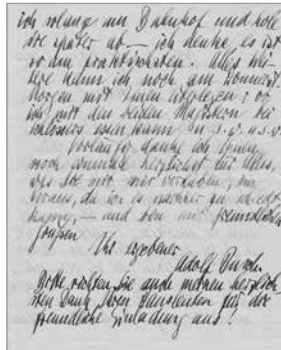 ich solange am Bahnhof und hole
sie später ab — ich denke, es ist
so am praktischsten. Alles wei-
tere kann ich noch am Konzert-
Morgen mit Ihnen
ich mit den beiden
essen kann u.s.w. u.s.w.
Vorläufig danke ich Ihnen
noch einmal herzlichst für alles,
was Sie mit mir vorhaben, im
voraus, da
— und bin mit freundlichen
Grüßen
Ihr ergebener
Adolf Busch
Bitte, richten Sie auch meinen herzlich-
sten Dank Ihren für die
freundliche Einladung aus!